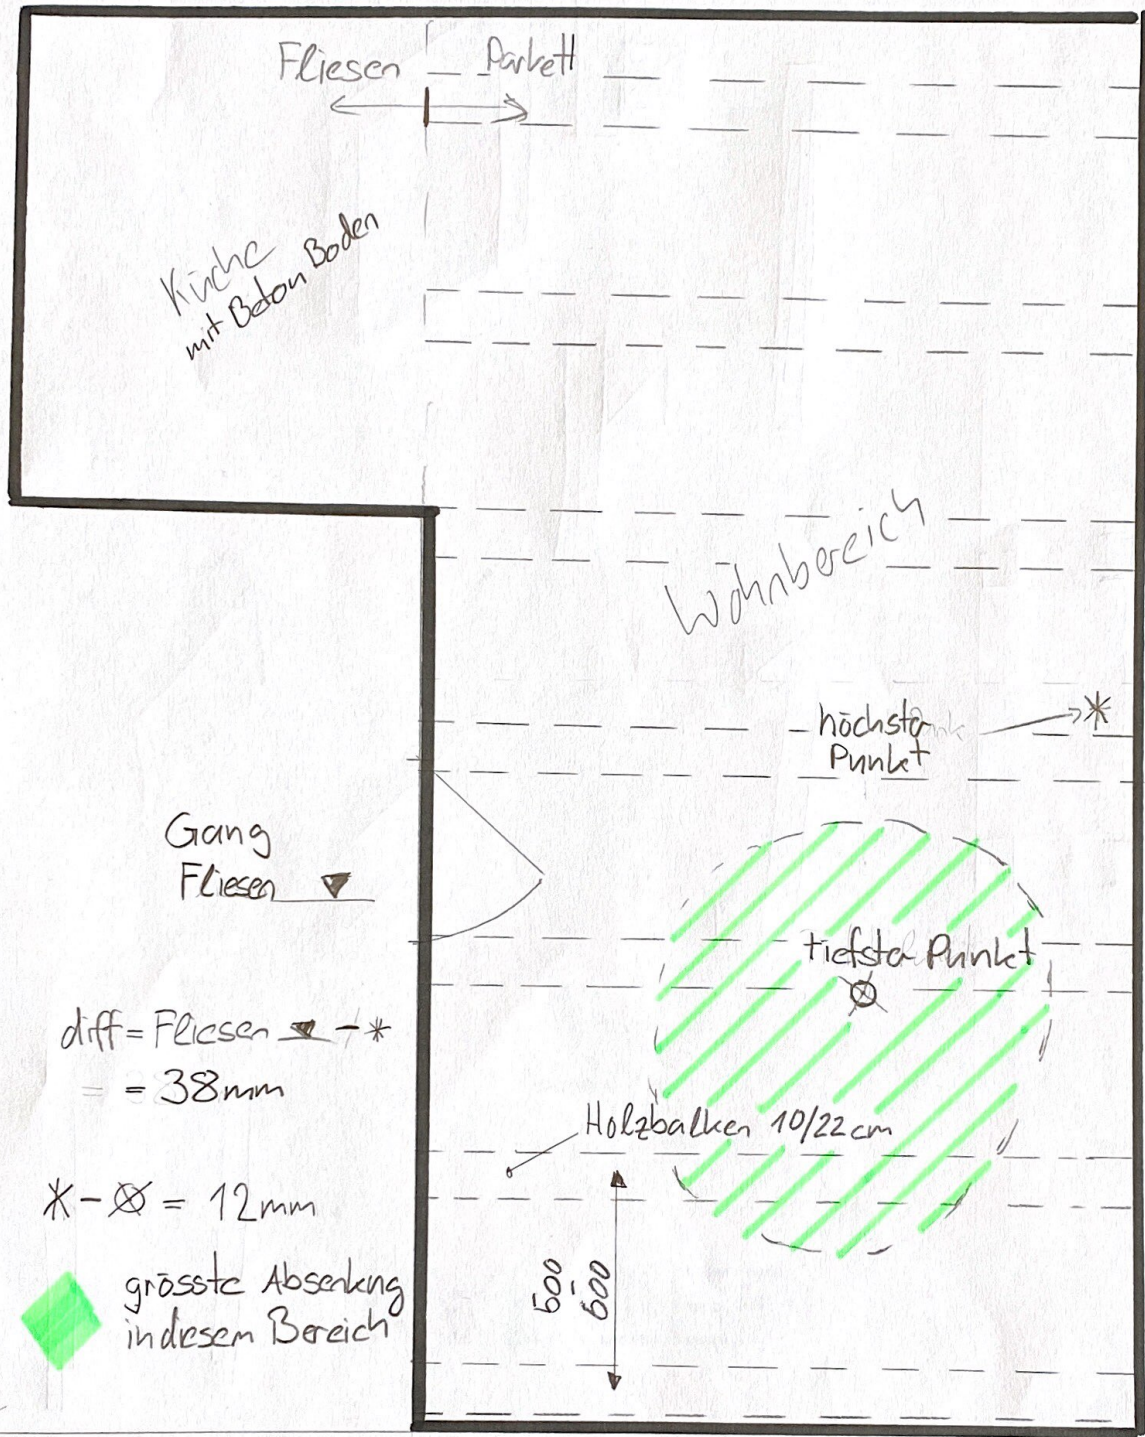 Fliesen Parkett
Küche
mit Beton Boden
Wohnbereich
höchsta
Punkt
Gang
Fliesen
tiefsta Punkt
diff = Fliesen - *
= = 38mm
Holzbalken 10/22cm
* - ⊗ = 12mm
500
-
600
grösste Absenkung
in diesem Bereich